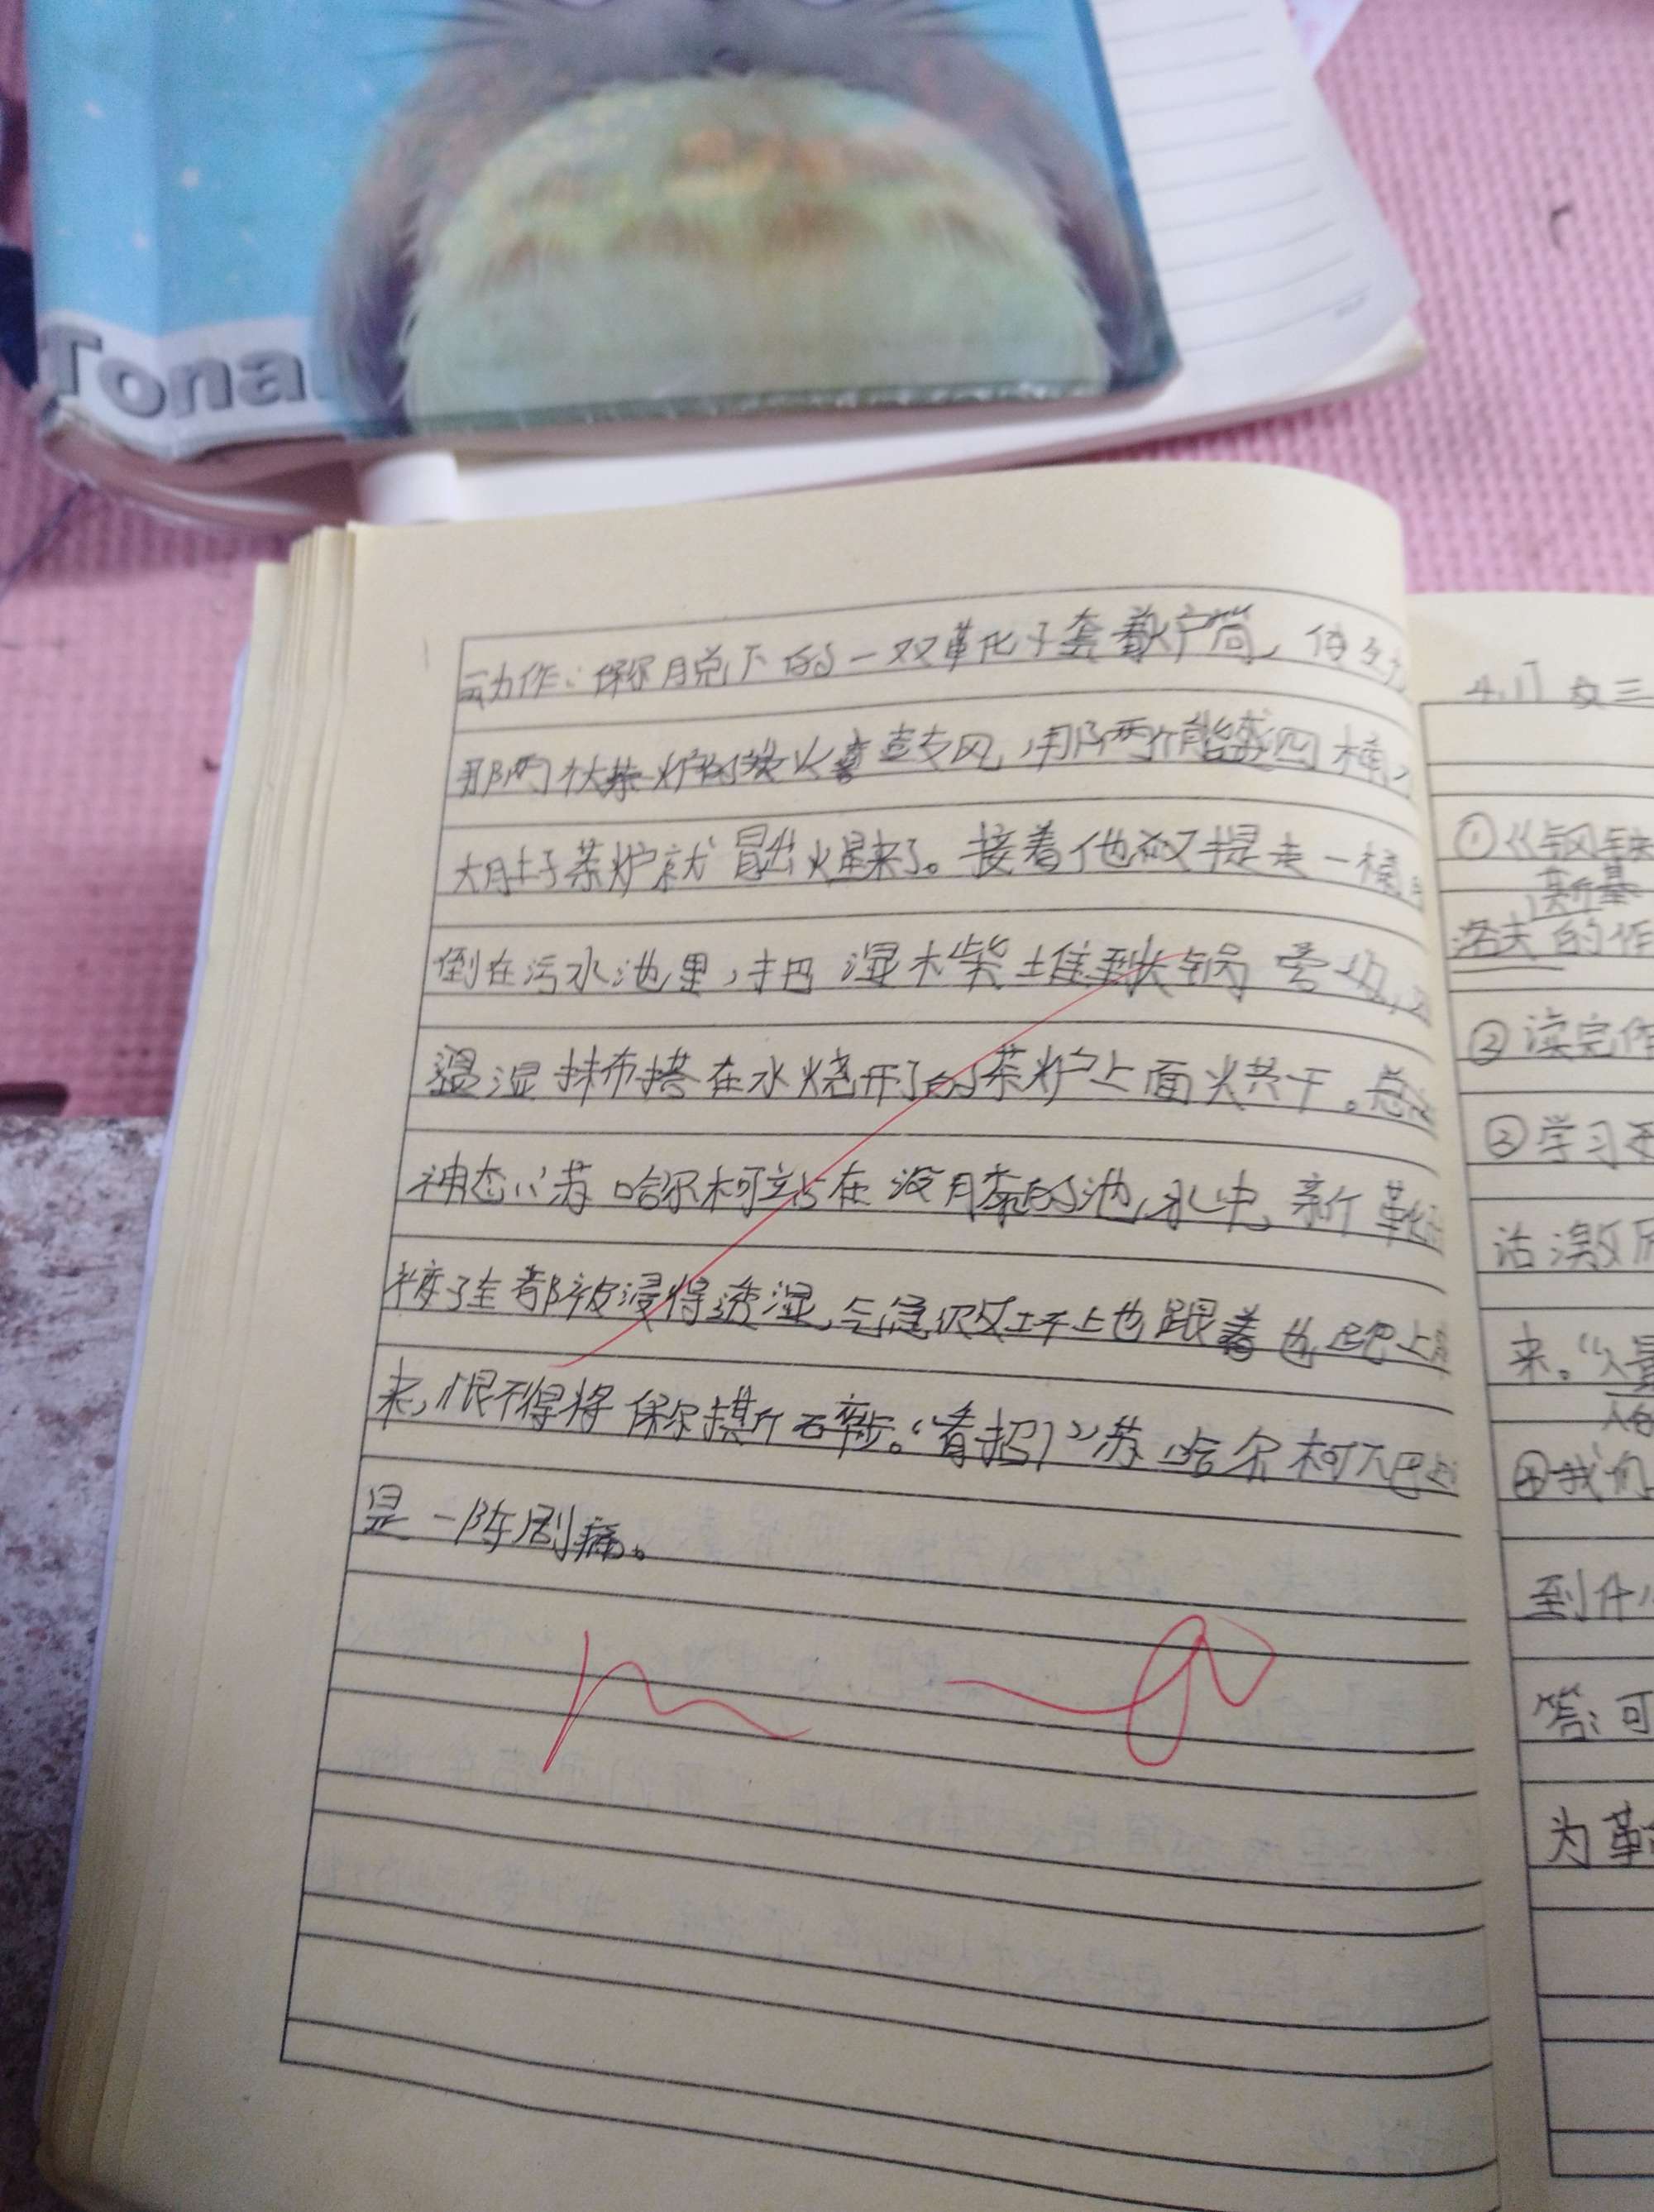 Tona
动作：保尔脱下的一双靴子套着炉筒，使
那两个茶炉的炭火鼓风，用那两个能盛四桶
大肚子茶炉就冒出火星来了。接着他又提走一桶
倒在污水池里，把湿木柴堆到大锅旁边，
湿抹布搭在水烧开了的茶炉上面烘干。总
神态：“苏哈尔柯站在没膝的池水中，新靴
裤子全都被浸得透湿，气急败坏上也跟着也跑上
来，恨不得将保尔撕碎。“看招！”苏哈尔柯下巴上
是一阵剧痛。
4.17 女三
①《钢铁
斯基
洛夫的作
②读完作
③学习
活激历
来。“人最
④我们
到什么
答：可
为革命